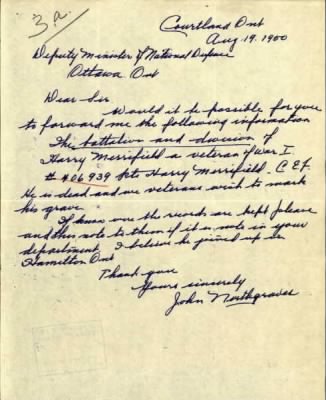 3a.
Courtland Ont
Aug 19. 1960
Deputy Minister of National Defence
Ottawa Ont
Dear Sir
Would it be possible for you
to forward me the following information
The battalion and division of
Harry Merrifield a veteran of war I
# 406939 Pte Harry Merrifield. C E F.
He is dead and we veterans wish to mark
his grave.
If know were the records are kept please
send this note to them if it is not in your
department. I believe he joined up in
Hamilton Ont
Thank you
Yours sincerely
John Northgraves